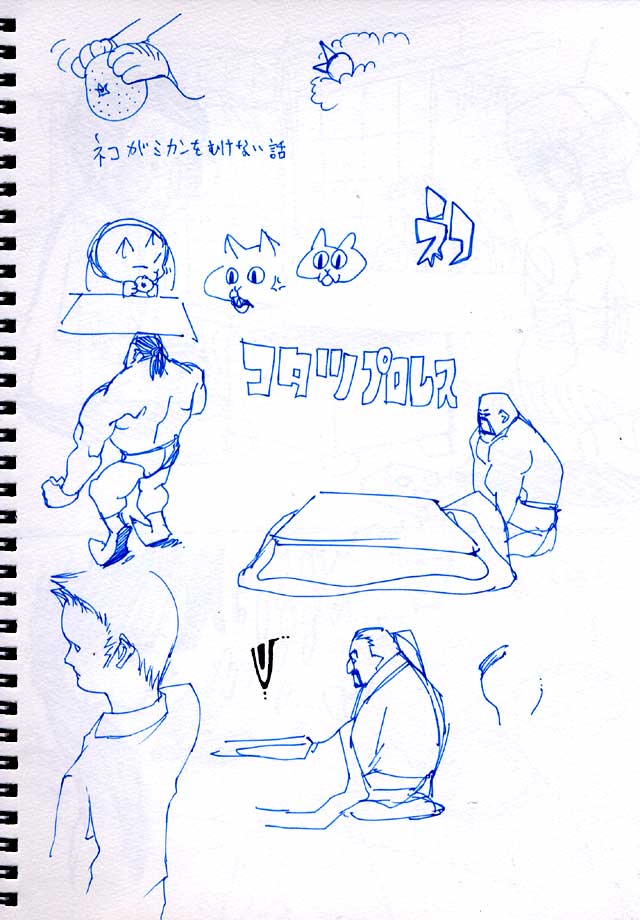 ネコがミカンをむけない話
ネコ
コタツプロレス